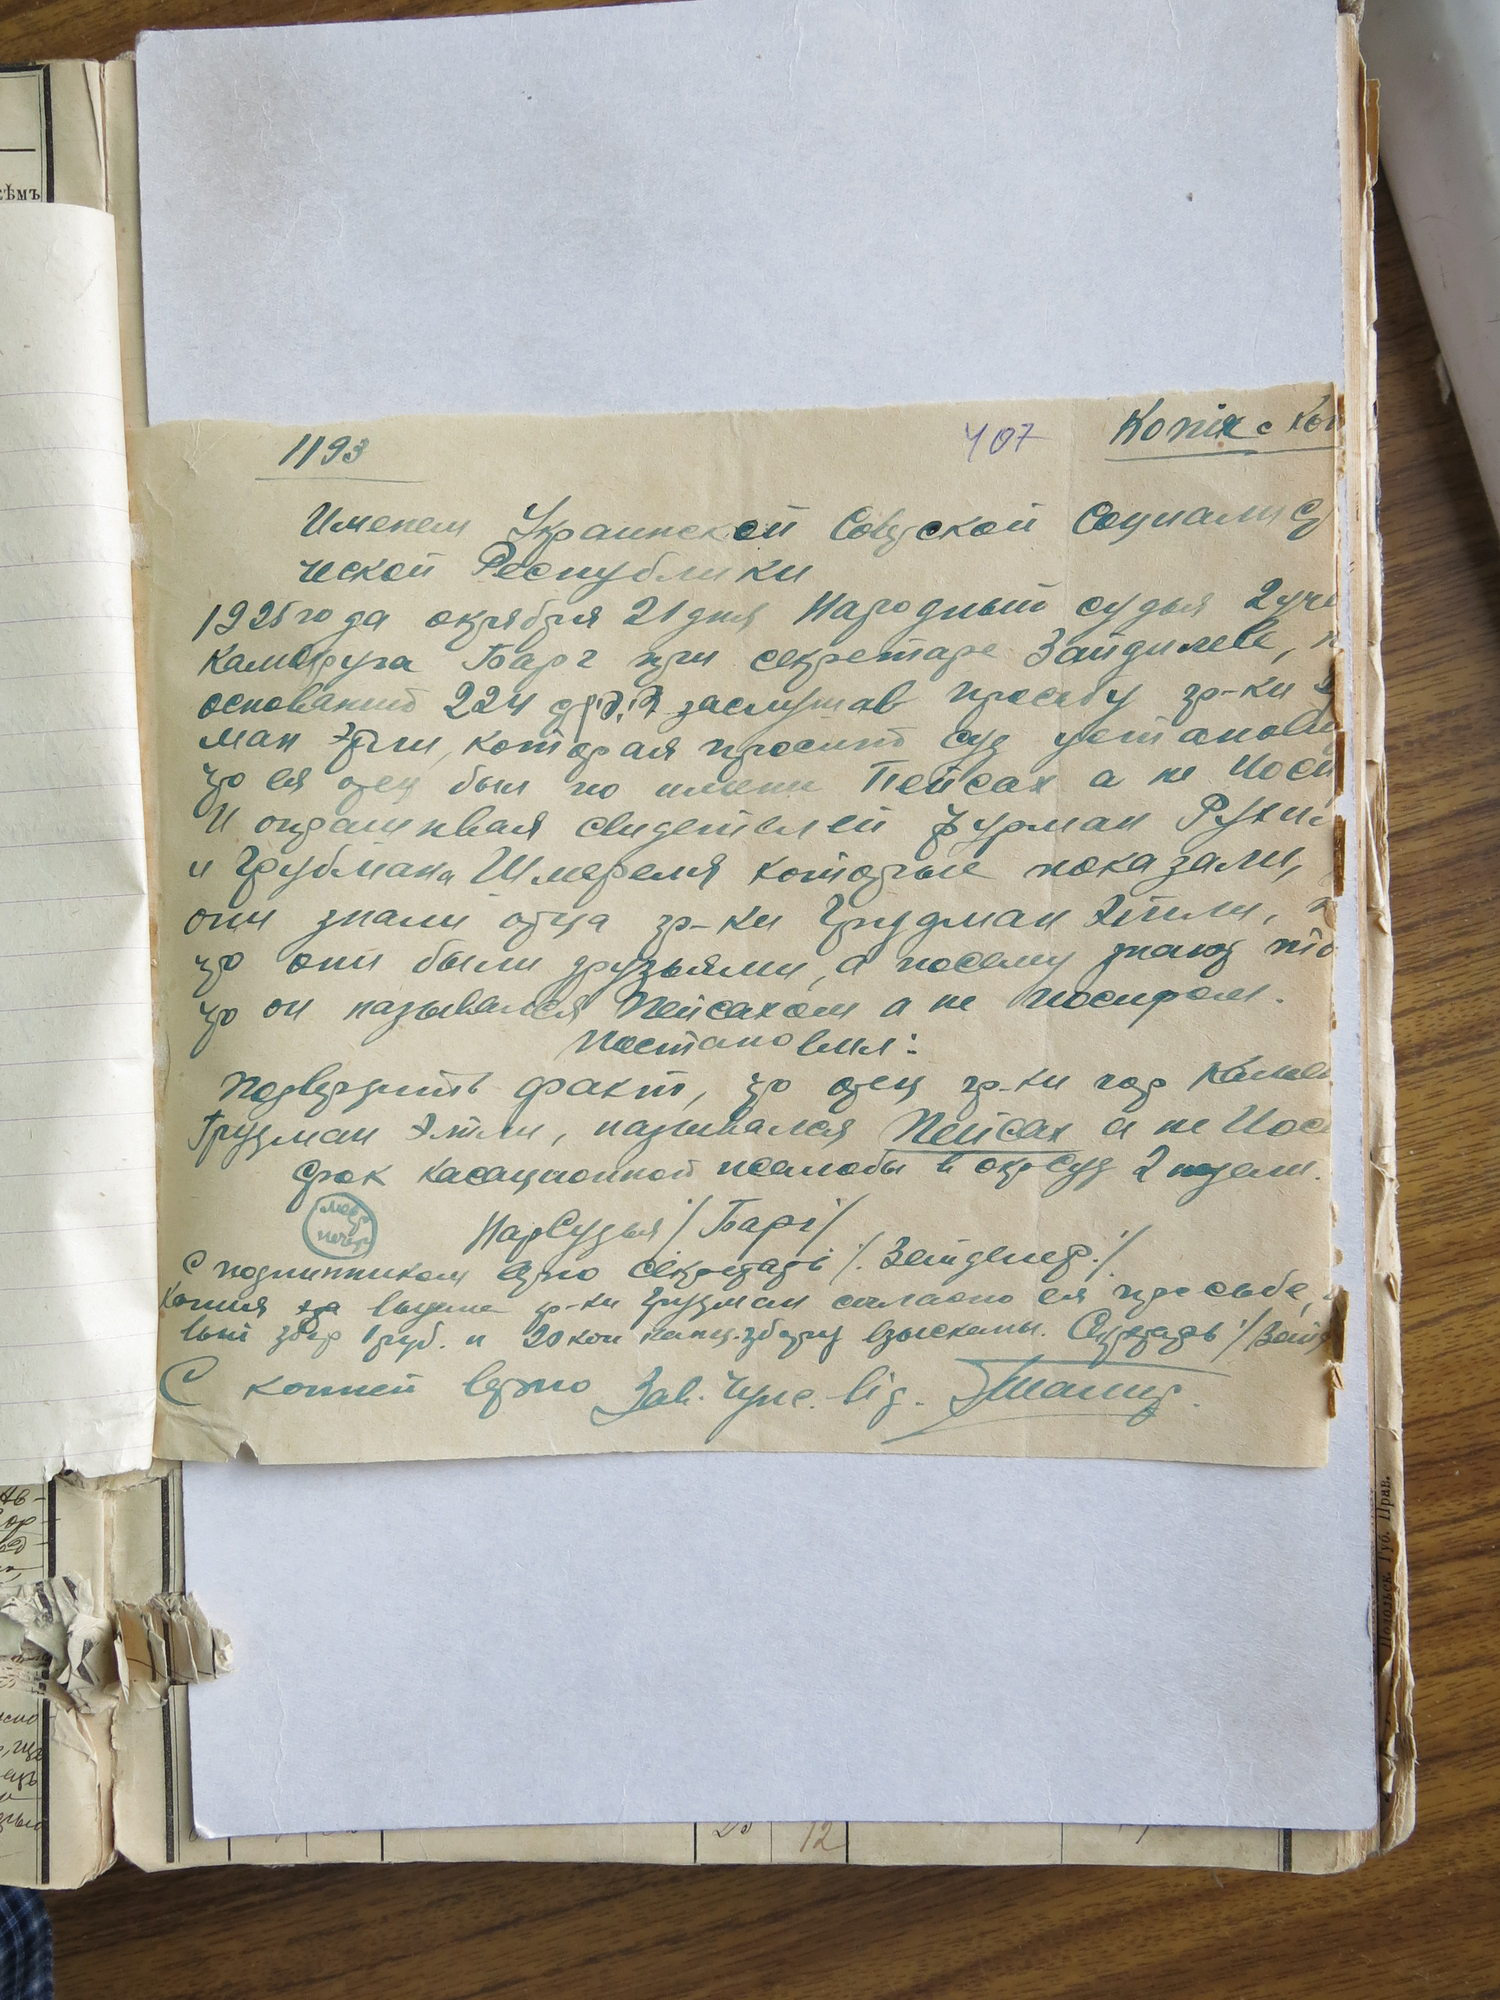 1193 407 Копия с
Именем Украинской Совтской Социалист
ческой Республики
1925 года октября 21 дня Народный судья 2 уч
Камокруга Барг при секретаре Зайдилеве,
оснований 224 заслушав просьбу гр-ки
ман Этли, которая просит суд установи
что ея отец был по имени Пейсах а не Иоси
И опрашивая свидетелей Фурман Рухи
и Грубмана Шмереля которые показали,
они знали отца гр-ки Грудман Этли,
что они были друзьями, а посему знают
что он назывался Пейсахом а не Иосифом.
Постановил:
Подвердить факт, что отец гр-ки гор Камен
Грудман Этли, назывался Пейсах а не Иос
Срок касационной жалобы в окрсуд 2 недели.
место
печат
НарСудья /Барг/
С подлинником верно секретарь /.Зейдлер./
Копия выдана гр-ки Грудман согласно ея просьбе,
вый збор 1 руб. и 20 коп канц. збору взысканы. Секретарь /Зей
С копией верно Зав. Чрс. від.
ѣмъ
Подольск. Губ. Прав.
12